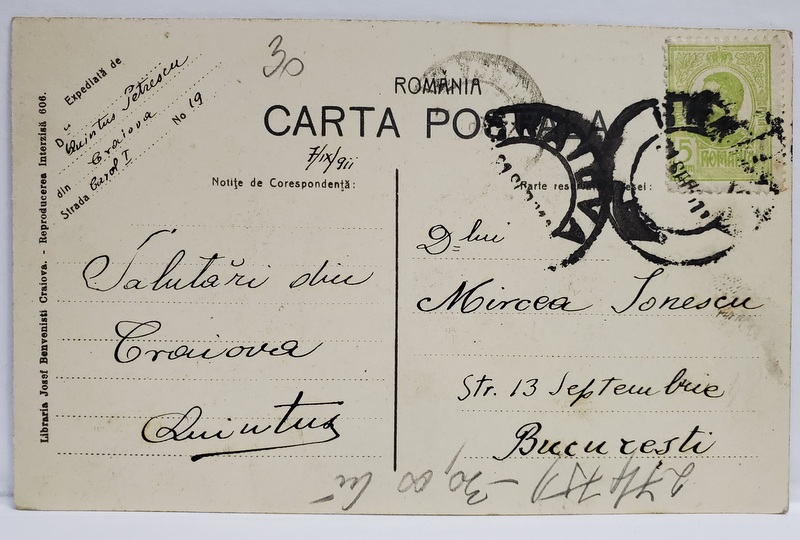 30
Expediată de
D-l Quintus Petrescu
din Craiova
Strada Carol I No 19
ROMÂNIA
CARTA POȘTALĂ
7/IX/911
Notițe de Corespondență:
Salutări din
Craiova
Quintus
D=lui
Mircea Ionescu
Str. 13 Septembrie
București
30,00 lei
Libraria Josef Benvenisti Craiova. - Reproducerea Interzisă 606.
5
ROMANIA